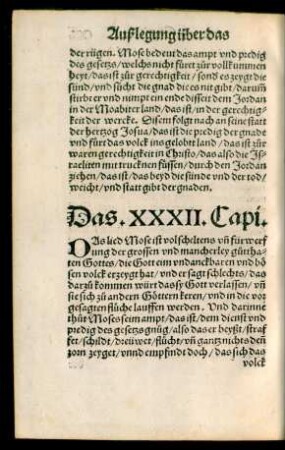 Außlegung über das
der rügen. Mose bedeut das ampt vnd predig
des gesetzs / welchs nicht füret zür vollkummen
heyt / das ist zür gerechtigkeit / sond es zeygt die
sünd / vnd sücht die gnad die es nit gibt / darum̃
stirbt er vnd nimpt ein ende disseit dem Jordan
in der Moabiter land / das ist / in der gerechtig-
keit der wercke. Disem folgt nach an seine statt
der hertzog Josua / das ist die predig der gnade
vnd fürt das volck ins gelobt land / das ist zür
waren gerechtigkeit in Christo / das also die Is-
raeliten mit trucknen füssen / durch den Jordan
ziehen / das ist / das beyd die sünde vnd der tod /
weicht / vnd statt gibt der gnaden.
Das. XXXII. Capi.
DAs lied Mose ist vol scheltens vñ fürwerf
ung der grossen vnd mancherley gūttha-
ten Gottes / die Gott eim vndanckbaren vnd bö
sen volck erzeygt hat / vnd er sagt schlechts / das
darzü kommen würt das sy Gott verlassen / vñ
sie sich zü andern Göttern keren / vnd in die vor
gesagten flüche lauffen werden. Vnd darinne
thüt Moses seim ampt / das ist / dem dienst vnd
predig des gesetzs gnüg / also das er heyßt / straf
fet / schildt / dreüwet / flücht / vñ gantz nichts deñ
zorn zeyget / vnnd empfindt doch / das sich das
volck